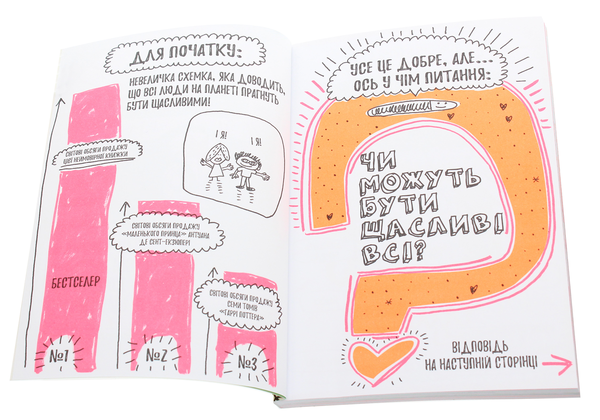 ДЛЯ ПОЧАТКУ:
НЕВЕЛИЧКА СХЕМКА, ЯКА ДОВОДИТЬ,
ЩО ВСІ ЛЮДИ НА ПЛАНЕТІ ПРАГНУТЬ
БУТИ ЩАСЛИВИМИ!
І Я! І Я!
СВІТОВІ ОБСЯГИ ПРОДАЖУ
ЦІЄЇ НЕЙМОВІРНОЇ КНИЖКИ
БЕСТСЕЛЕР
№1
СВІТОВІ ОБСЯГИ ПРОДАЖУ
«МАЛЕНЬКОГО ПРИНЦА» АНТУАНА
ДЕ СЕНТ-ЕКЗЮПЕРІ
№2
СВІТОВІ ОБСЯГИ ПРОДАЖУ
СЕМИ ТОМІВ
«ГАРРІ ПОТТЕРА»
№3
УСЕ ЦЕ ДОБРЕ, АЛЕ...
ОСЬ У ЧІМ ПИТАННЯ:
ЧИ
МОЖУТЬ
БУТИ
ЩАСЛИВІ
ВСІ?
ВІДПОВІДЬ
НА НАСТУПНІЙ СТОРІНЦІ